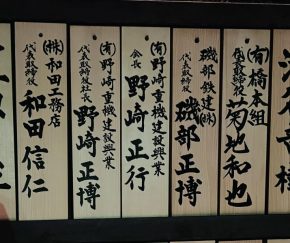 (有)橋本組
代表取締役
菊地和也
磯部鉄建(株)
代表取締役
磯部正博
(有)野崎重機建設興業
会長
野崎正行
(有)野崎重機建設興業
代表取締役社長
野崎正博
(株)和田工務店
代表取締役
和田信仁